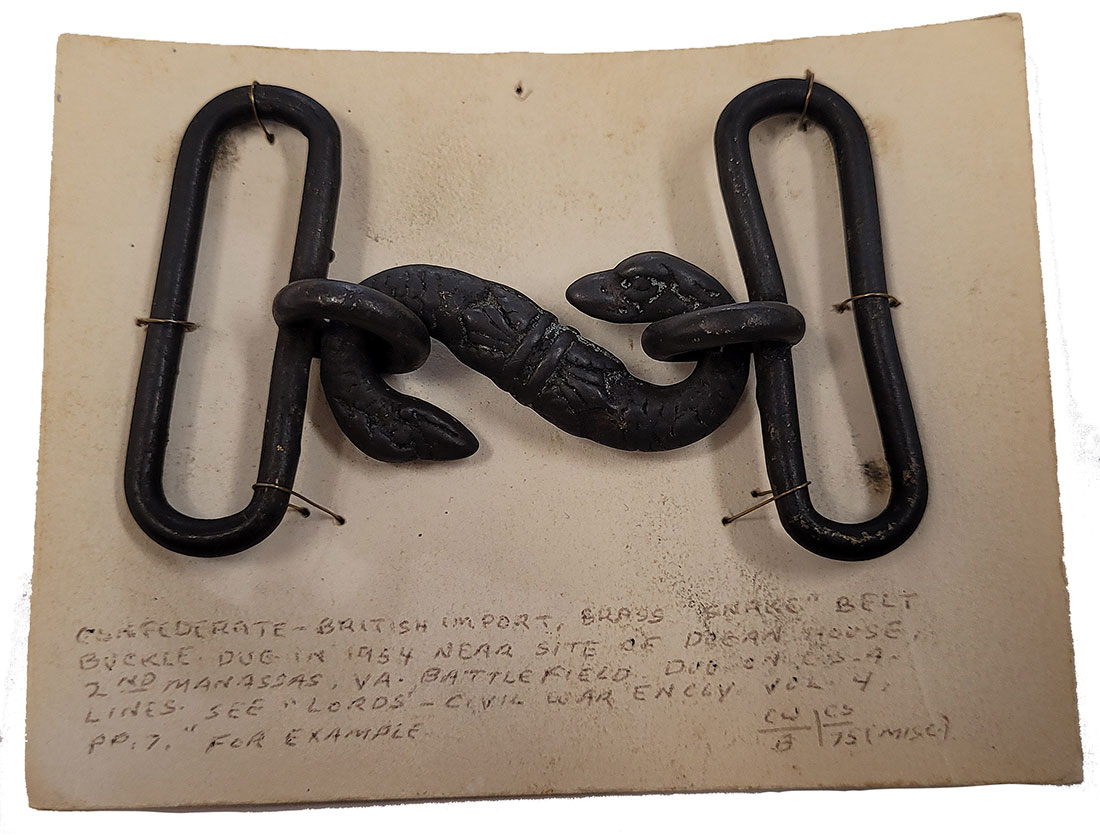 CONFEDERATE - BRITISH IMPORT, BRASS "SNAKE" BELT
BUCKLE. DUG IN 1954 NEAR SITE OF DOGAN HOUSE,
2ND MANASSAS, VA. BATTLEFIELD. DUG ON C.S.A.
LINES. SEE "LORDS - CIVIL WAR ENCLY VOL. 4,
PP. 7." FOR EXAMPLE.
CW/B | CS/75 (MISC)